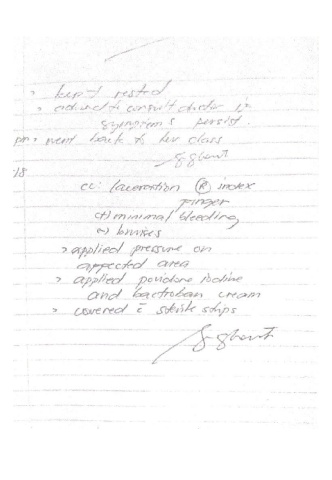 > kept rested
> advised to consult doctor if
symptoms persist.
> went back to her class
18
cc: laceration Ⓡ index
finger
(+) minimal bleeding
bruises
> applied pressure on
affected area
> applied povidone iodine
and bactroban cream
> covered c̄ sterile strips